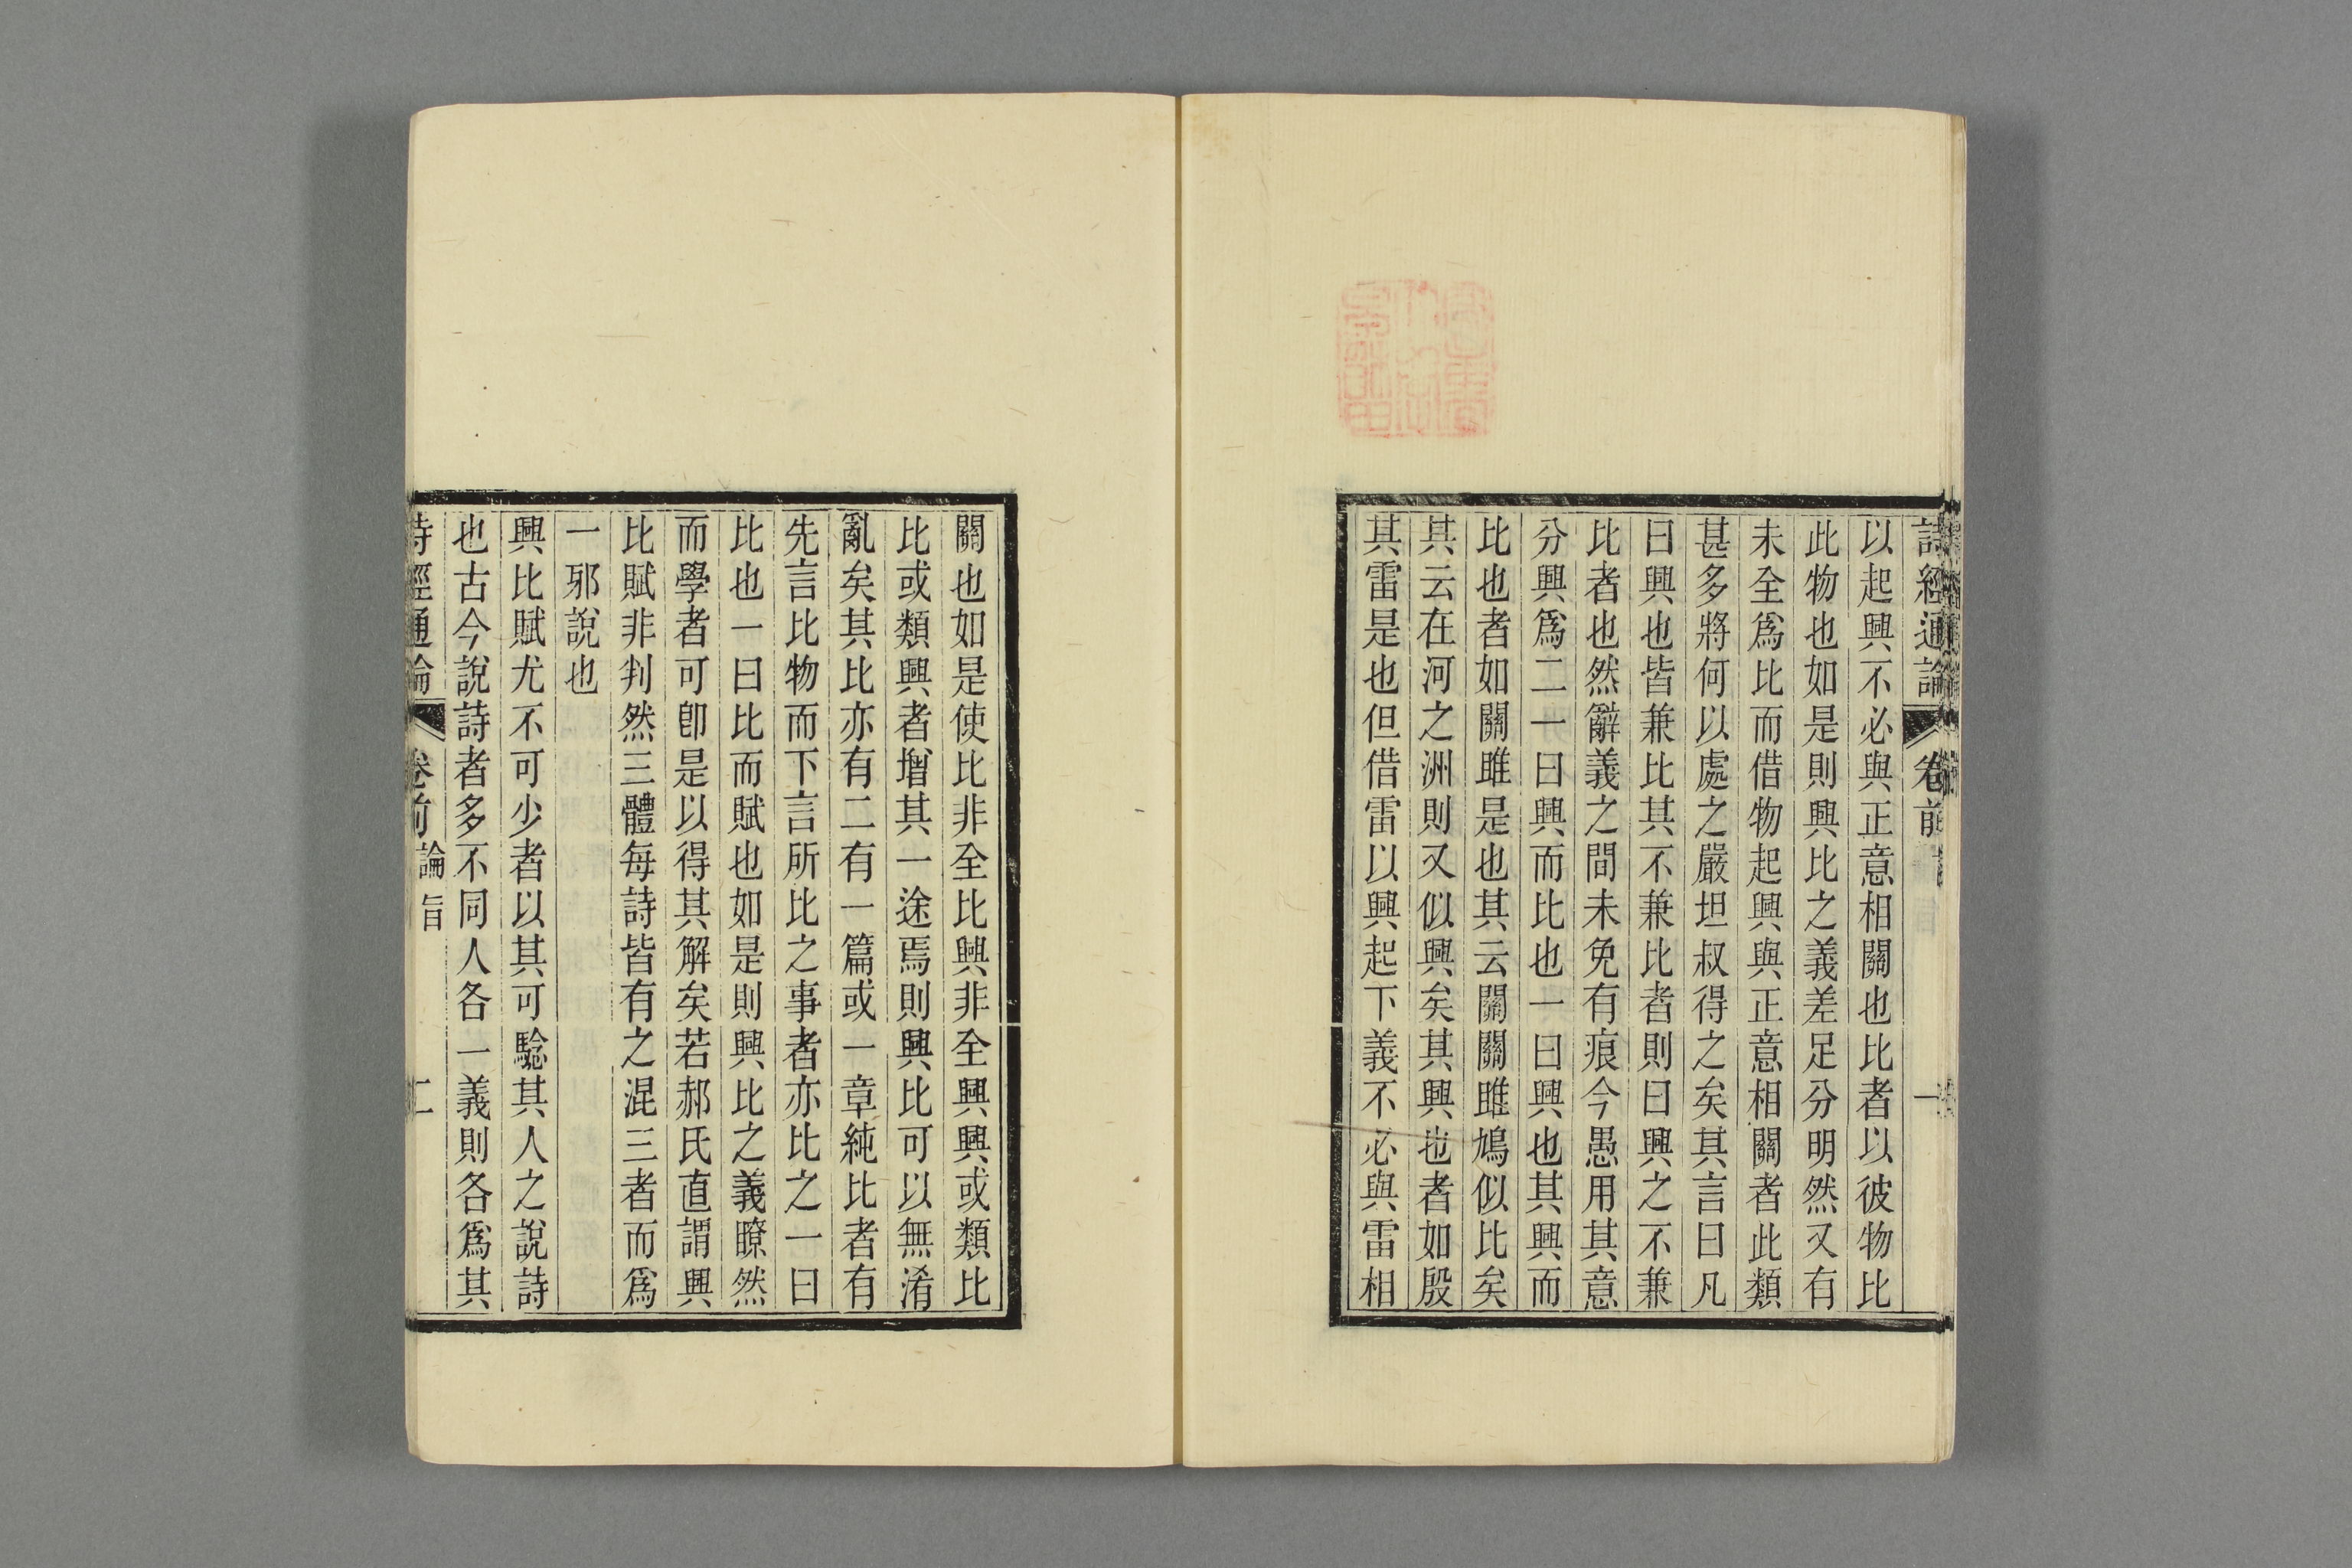 詩經通論 卷前 一
以起興不必與正意相關也比者以彼物比
此物也如是則興比之義差足分明然又有
未全爲比而借物起興與正意相關者此類
甚多將何以處之嚴坦叔得之矣其言曰凡
曰興也皆兼比其不兼比者則曰興之不兼
比者也然辭義之間未免有痕今愚用其意
分興爲二一曰興而比也一曰興也其興而
比也者如關雎是也其云關關雎鳩似比矣
其云在河之洲則又似興矣其興也者如殷
其雷是也但借雷以興起下義不必與雷相
關也如是使比非全比興非全興興或類比
比或類興者增其一途焉則興比可以無淆
亂矣其比亦有二有一篇或一章純比者有
先言比物而下言所比之事者亦比之一曰
比也一曰比而賦也如是則興比之義瞭然
而學者可卽是以得其解矣若郝氏直謂興
比賦非判然三體每詩皆有之混三者而爲
一邪說也
興比賦尤不可少者以其可驗其人之說詩
也古今說詩者多不同人各一義則各爲其
詩經通論 卷前 論旨 二